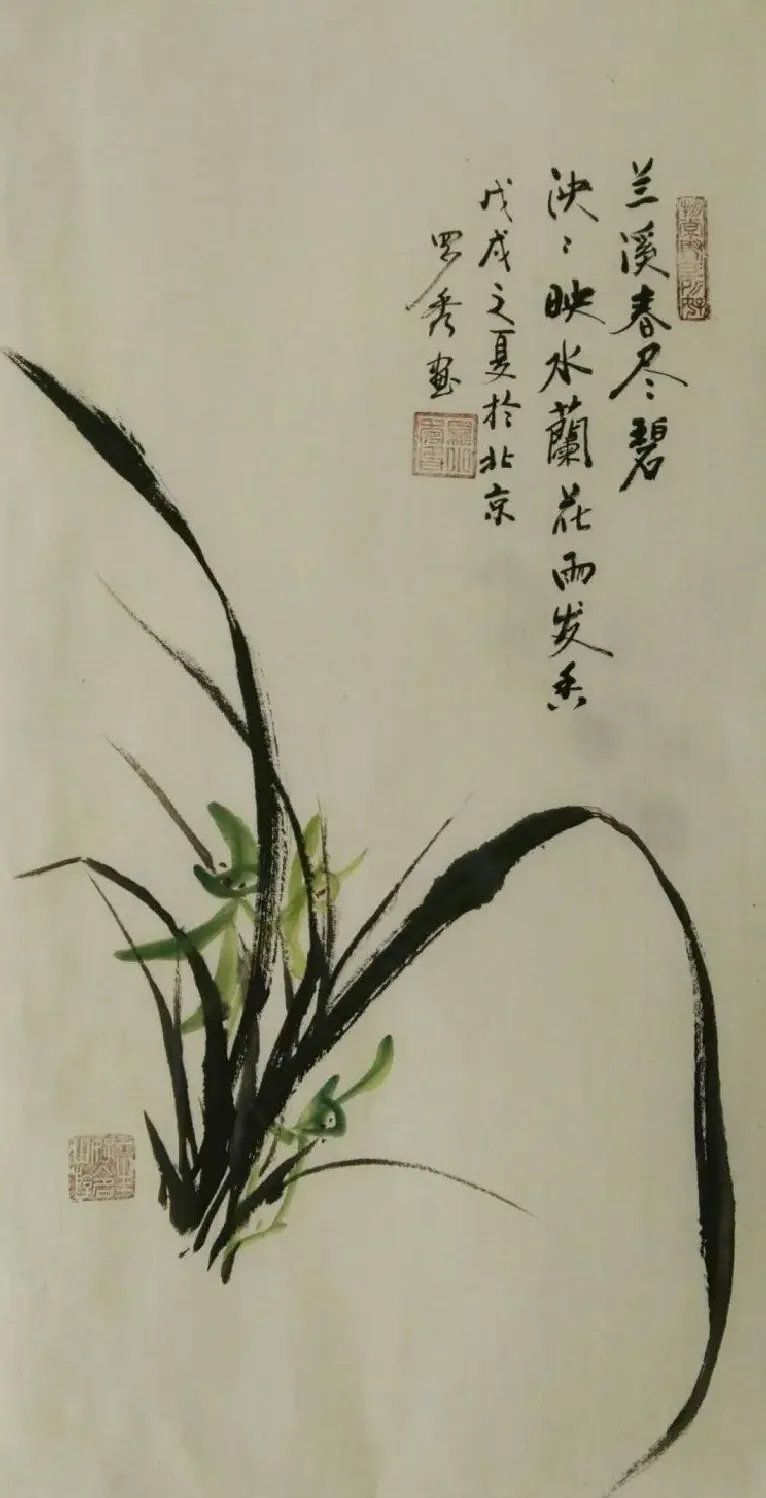 兰溪春尽碧
泱〻映水蘭花雨发香
戊戌之夏於北京
罗秀画